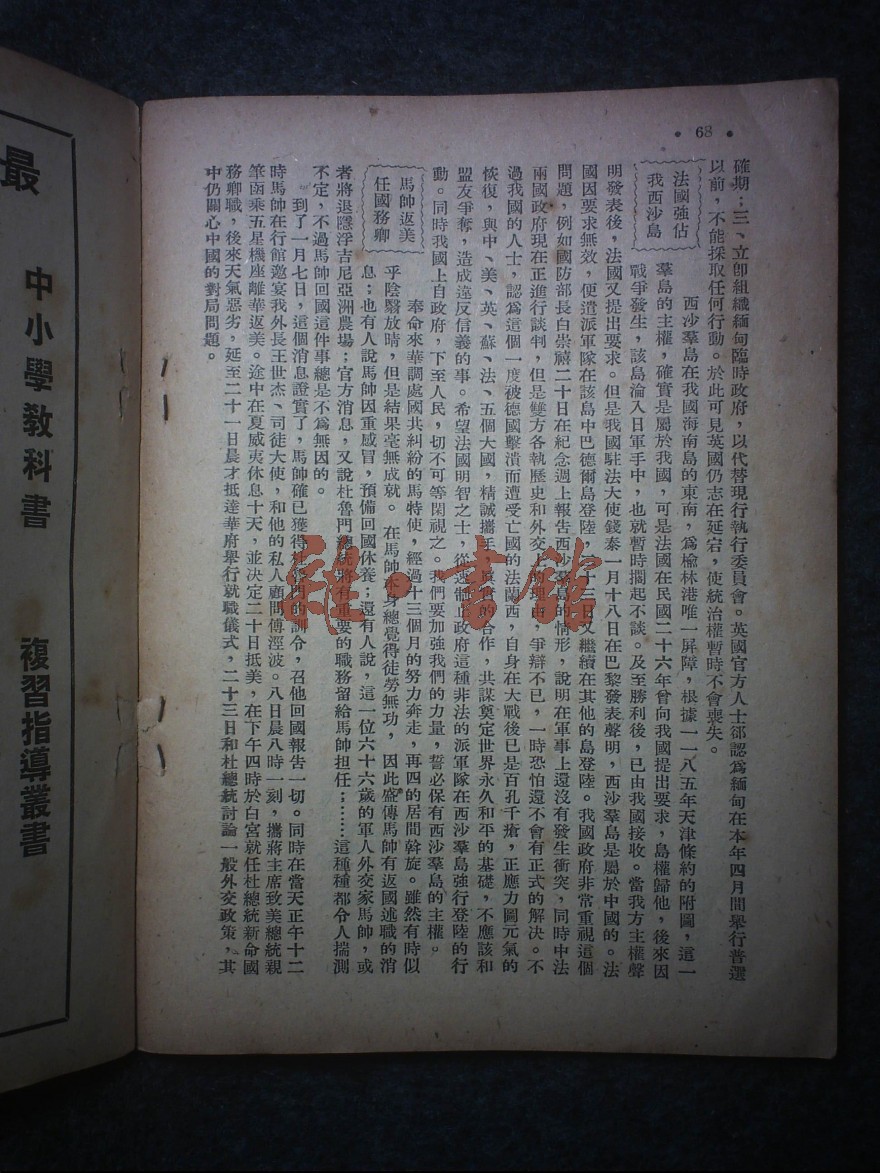 • 68 •
確期；三、立卽組織緬甸臨時政府，以代替現行執行委員會。英國官方人士郤認爲緬甸在本年四月間舉行普選
以前，不能採取任何行動。於此可見英國仍志在延宕，使統治權暫時不會喪失。
法國強佔
我西沙島
西沙羣島在我國海南島的東南，爲榆林港唯一屏障，根據一一八五年天津條約的附圖，這一
羣島的主權，確實是屬於我國，可是法國在民國二十六年曾向我國提出要求，島權歸他，後來因
戰爭發生，該島淪入日軍手中，也就暫時擱起不談。及至勝利後，已由我國接收。當我方主權聲
明發表後，法國又提出要求。但是我國駐法大使錢泰一月十八日在巴黎發表聲明，西沙羣島是屬於中國的。法
國因要求無效，便遣派軍隊在該島中巴德爾島登陸，二十三日又繼續在其他的島登陸。我國政府非常重視這個
問題，例如國防部長白崇禧二十日在紀念週上報告西沙羣島的情形，說明在軍事上還沒有發生衝突，同時中法
兩國政府現在正進行談判，但是雙方各執歷史和外交上的理由，爭辯不已，一時恐怕還不會有正式的解決。不
過我國的人士，認爲這個一度被德國擊潰而遭受亡國的法蘭西，自身在大戰後已是百孔千瘡，正應力圖元氣的
恢復，與中、美、英、蘇、法、五個大國，精誠攜手，的合作，共謀奠定世界永久和平的基礎，不應該和
盟友爭奪，造成違反信義的事。希望法國明智之士，從速制止政府這種非法的派軍隊在西沙羣島強行登陸的行
動。同時我國上自政府，下至人民，切不可等閑視之。我們要加強我們的力量，誓必保有西沙羣島的主權。
馬帥返美
任國務卿
奉命來華調處國共糾紛的馬特使，經過十三個月的努力奔走，再四的居間斡旋。雖然有時似
乎陰翳放晴，但是結果毫無成就。在馬帥本身總覺得徒勞無功，因此盛傳馬帥有返國述職的消
息；也有人說馬帥因重感冒，預備回國休養；還有人說，這一位六十六歲的軍人外交家馬帥，或
者將退隱浮吉尼亞洲農場；官方消息，又說杜魯門總統將有重要的職務留給馬帥担任；……這種種都令人揣測
不定，不過馬帥回國這件事總是不爲無因的。
到了一月七日，這個消息證實了，馬帥確已獲得杜魯門的訓令，召他回國報告一切。同時在當天正午十二
時馬帥在行館邀宴我外長王世杰、司徒大使，和他的私人顧問傅涇波。八日晨八時一刻，攜蔣主席致美總統親
筆函乘五星機座離華返美。途中在夏威夷休息十天，並决定二十日抵美，在下午四時於白宮就任杜總統新命國
務卿職，後來天氣惡劣，延至二十一日晨才抵達華府舉行就職儀式，二十三日和杜總統討論一般外交政策，其
中仍關心中國的對局問題。
最
中小學教科書 複習指導叢書